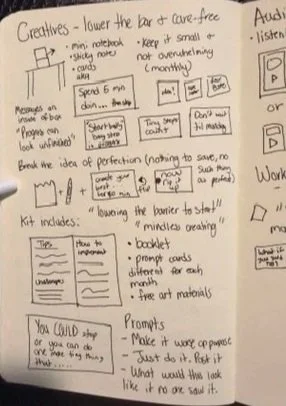 Creatives - lower the bar & care-free
• mini notebook
• sticky notes
• cards
• Keep it small &
not overwhelming
(monthly)
Messages on
inside of box
"Progress can
look unfinished"
Spend 5 min
doin...
idea!
Start
Tiny steps
count
Don't wait
til
Break the idea of perfection (nothing to save, no
such thing
as perfect)
create your
best
now
rip it
up
"lowering the barrier to start"
"mindless creating"
Kit includes:
Tips
How to
implement
Challenges
• booklet
• prompt cards
different for each
month
• free art materials
You COULD stop
or you can do
one more tiny thing
that.....
Prompts
- Make it worse on purpose
- Just do it. Post it
- What would this look
like if no one saw it.
Audi
• listen
Work
What if